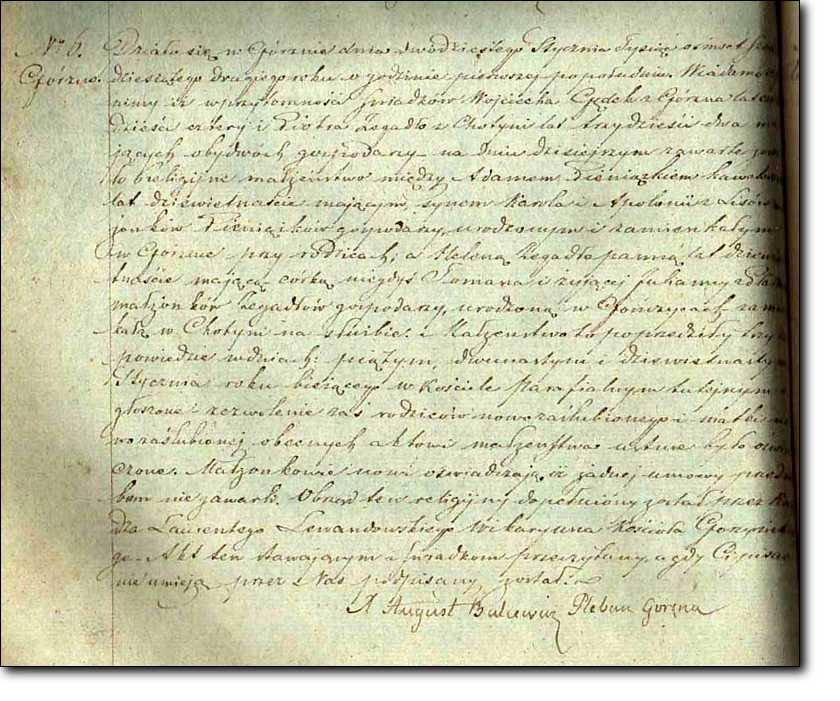 Nro 6. Działo się w Górznie dnia dwudziestego Stycznia Tysiąc osmset sześ
Górzno. dziesiątego drugiego roku o godzinie pierwszej po południu. Wiadomo czy
nimy iż w przytomności świadków Wojciecha Gędek z Górzna lat
dzieści cztery i Piotra Zegadło z Chotyni lat trzydzieści dwa ma
jących obydwóch gospodarzy na dniu dzisiejszym zawarte zos
ło religijne małżeństwo między Adamem Pieniążkiem kawalerem
lat dziewiętnaście mającym, synem Karola i Apolonii z Lisów
żonków Pieniążków gospodarzy, urodzonym i zamieszkałym
w Górznie przy rodzicach; a Heleną Zegadło panną lat dziewię
tnaście mającą córką niegdyś Tomasza i żyjącej
małżonków Zegadłów gospodarzy, urodzoną w Gończycach zamie
kałą w Chotyni na służbie. Małżeństwo to poprzedziły trzy
powiedzie w dniach: piątym, dwunastym i dziewiętnastym
Stycznia roku bieżącego w kościele parafialnym tutejszym
głoszone zezwolenie zaś rodziców nowozaślubionego i matki no
wozaślubionej obecnych aktowi małżeństwa ustnie było oświad
czone. Małżonkowie nowi oświadczają iż żadnej umowy przedślu
bnej nie zawarli. Obrząd ten religijny dopełniony został przez Xię
dza Laurentego Lewandowskiego Wikaryusza Kościoła Górzyńskie
go. Akt ten stawającym i świadkom przeczytany, a gdy Ci pisać
nie umieją przez Nas podpisany został.
X August Pleban Gorzna